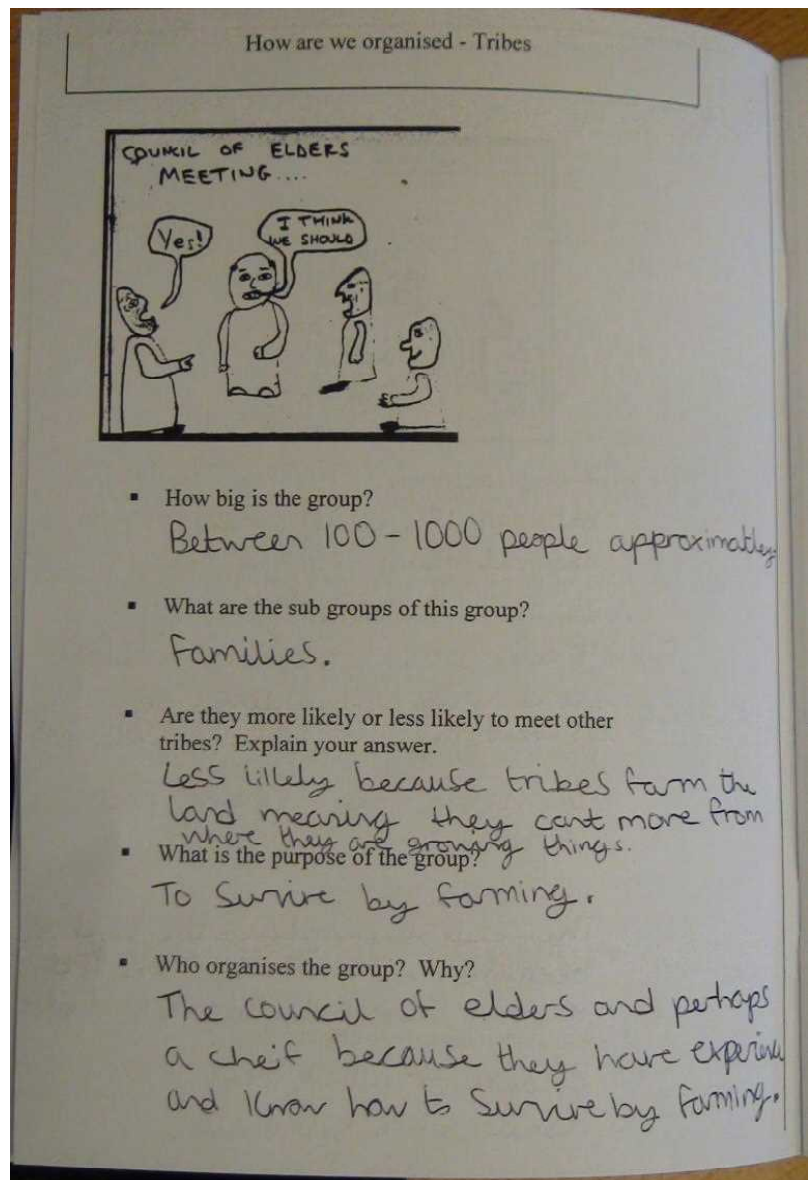 How are we organised - Tribes
COUNCIL OF ELDERS
MEETING....
Yes!
I THINK
WE SHOULD
▪ How big is the group?
Between 100 - 1000 people approximatley.
▪ What are the sub groups of this group?
Families.
▪ Are they more likely or less likely to meet other
tribes? Explain your answer.
Less likely because tribes farm the
land meaning they cant move from
where they are growing things.
▪ What is the purpose of the group?
To Survive by farming.
▪ Who organises the group? Why?
The council of elders and perhaps
a cheif because they have experience
and know how to Survive by farming.